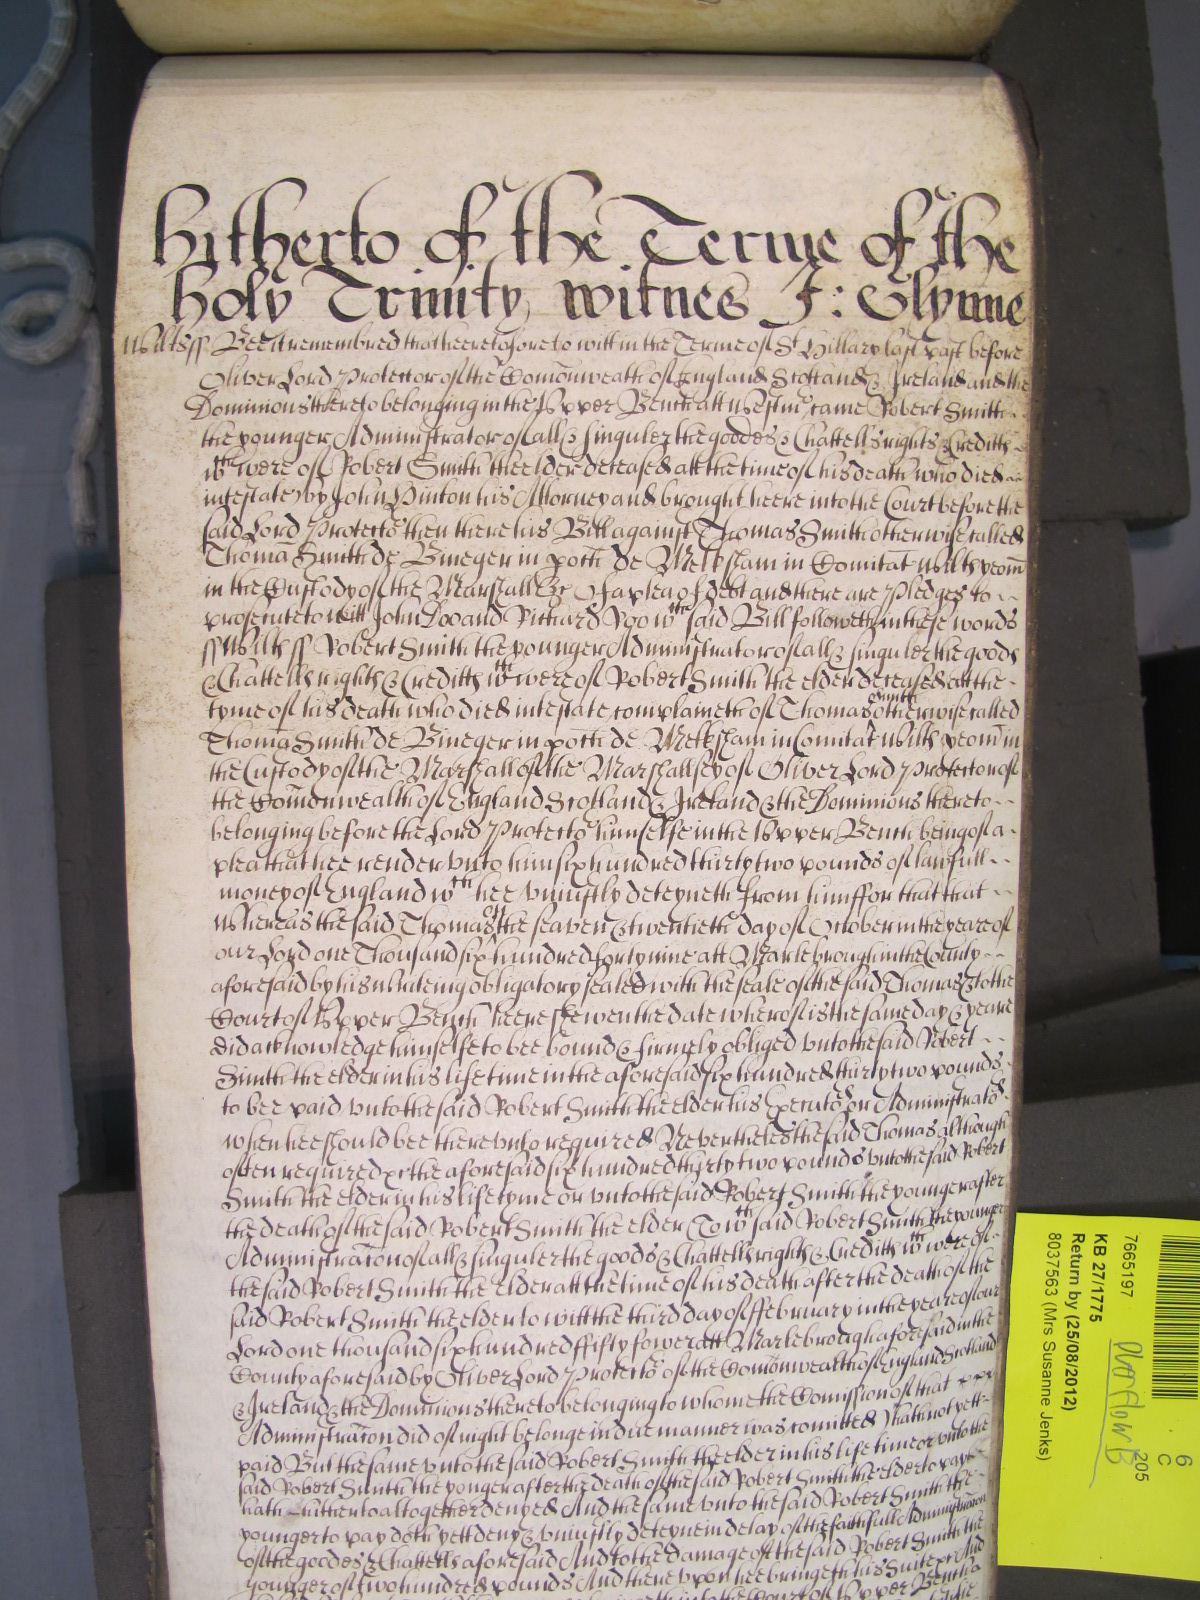 hitherto of the Terme of the
holy Trinity witnes J: Glynne
Wiltss ss Bee it remembred that heeretofore to witt in the Terme of St Hillary last past before
Oliver Lord Protector of the Comonwealth of England Scotland & Ireland and the
Dominions thereto belonging in the Upper Bench att Westmr came Robert Smith
the younger Administrator of all & singuler the goodes & Chattells rights & Creditts
wch were of Robert Smith the elder deceased att the time of his death who died
intestate by John Vinton his Attorney and brought heere into the Court before the
said Lord Protector then there his Bill against Thomas Smith otherwise called
Thoma Smith de Bineger in poch de Melksham in Comitat Wilts yeom
in the Custody of the Marshall &c Of a plea of debt and there are Pledges to
prosecute to witt John Doo and Richard Roo wch said Bill followeth in these words
ss Wilts ss Robert Smith the younger Administrator of all & singuler the goods
& Chattells rights & Creditts wch were of Robert Smith the elder deceased att the
tyme of his death who died intestate complaineth of Thomas Smith otherwise called
Thoma Smith de Bineger in poch de Melksham in Comitat Wilts yeom in
the Custody of the Marshall of the Marshallsey of Oliver Lord Protector of
the Comonwealth of England Scotland & Ireland & the Dominions thereto
belonging before the Lord Protector himselfe in the Upper Bench being of a
plea that hee render unto him six hundred thirty two pounds of lawfull
money of England wch hee uniustly deteyneth from him ffor that that
Whereas the said Thomas the seaven & twentieth day of October in the yeare of
our Lord one Thousand six hundred forty nine att Marlebrough in the County
aforesaid by his writeing obligatory sealed with the seale of the said Thomas & to the
Court of Upper Bench heere shewen the date whereof is the same day & yeare
did acknowledge himselfe to bee bound & firmely obliged unto the said Robert
Smith the elder in his life time in the aforesaid six hundred thirty two pounds
to bee paid unto the said Robert Smith the elder his Executors or Administrators
when hee should bee thereunto required Neverthelesthe said Thomas although
often required &c the aforesaid six hundred thirty two pounds unto the said Robert
Smith the elder in his life tyme or unto the said Robert Smith the younger after
the death of the said Robert Smith the elder (To wch said Robert Smith the younger
Administration of all & singuler the goods & Chattells rights & Creditts wch were of
the said Robert Smith the elder att the time of his death after the death of the
said Robert Smith the elder to witt the third day of ffebruary in the yeare of our
Lord one thousand six hundred fifty fower att Marlebrough aforesaid in the
County aforesaid by Oliver Lord Protector of the Comonwealth of England Scotland
& Ireland & the Dominions thereto belonging to whome the Comission of that
Administracon did of right belonge in due manner was comitted) hath not yett
paid But the same unto the said Robert Smith the elder in his life time or unto the
said Robert Smith the yonger after the death of the said Robert Smith the elder to pay
hath hitherto altogether denyed And the same unto the said Robert Smith the
younger to pay doth yett deny & uniustly deteyne in delay of the faithfull Administracon
of the goodes & Chattells aforesaid And to the damage of the said Robert Smith the
younger of two hundred pounds And thereupon hee bringeth his Suite &c And
7665197
KB 27/1775
Return by (25/08/2012)
8037563 (Mrs Susanne Jenks)
205
6
C